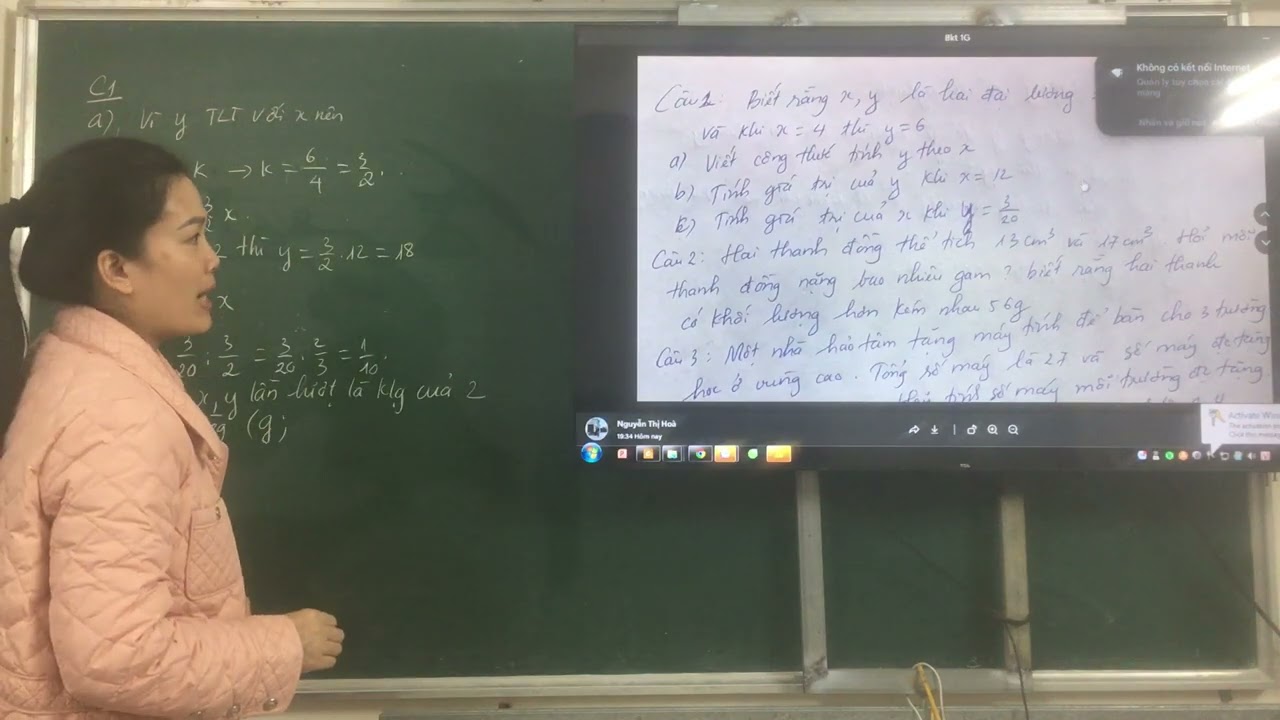 C1
a), Vì y TLT với x nên
k → k = 6/4 = 3/2.
x.
2 thì y = 3/2 . 12 = 18
x
3/20 : 3/2 = 3/20 . 2/3 = 1/10.
x, y lần lượt là klg của 2
(g;
Bkt 1G
Không có kết nối Internet
Câu 1: Biết rằng x, y là hai đại lượng
và khi x = 4 thì y = 6
a) Viết công thức tính y theo x
b) Tính giá trị của y khi x = 12
c) Tính giá trị của x khi y = 3/20
Câu 2: Hai thanh đồng thể tích 13 cm³ và 17 cm³. Hỏi mỗi
thanh đồng nặng bao nhiêu gam? biết rằng hai thanh
có khối lượng hơn kém nhau 56g
Câu 3: Một nhà hảo tâm tặng máy tính để bàn cho 3 trường
học ở vùng cao. Tổng số máy là 27 và số máy đc tặng
tính số máy mỗi trường đc tặng
Nguyễn Thị Hoà
19:34 Hôm nay
Activate